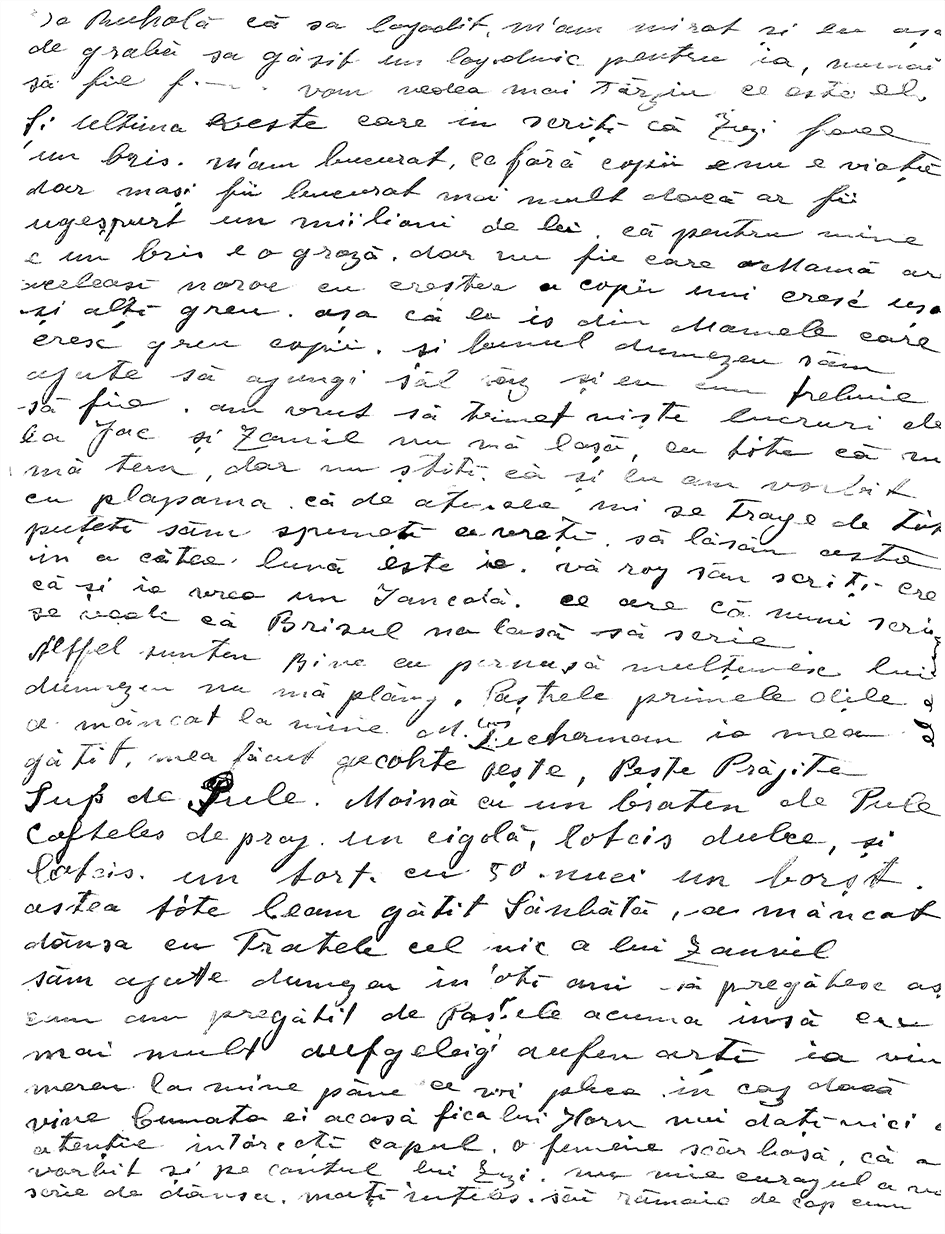 că sa logodit, m'am mirat si eu așa
de grabă sa găsit un logodnic pentru ia, numai
să fie vom vedea mai Tărziu ce este el.
Și ultima care in scriți că Zuzi face
un bris. m'am bucurat, ca fără copii nu e viață
dar mași fii bucurat mai mult dacă ar fii
un miilion de lei. că pentru mine
e un bris e o groză. dar nu fie care Mamă are
aceleasi noroc cu creștere a copii unii cresc ușo
si alți greu. așa că eu is din Mamele care
cresc greu copii. si bunul dumnezeu săm
ajute să ajungi săl văz și eu cum trebuie
să fie. am vrut să trimet niște lucruri de
la Jac și Zamvil nu mă lasă, cu tóte că nu
mă tem, dar nu știți că și eu am vorbit
cu plapama. că de atuncea mi se trage de tót
puteti săm spuneti ce vreți. să lăsăm asta
in a cătea lună este ia. vă rog săm scriți cre
că și ia vrea un Iancală. ce are că numi scrie
se vede că Brisul na lasă să scrie
Altfel suntem Bine cu pernasă multumesc lui
dumnezeu nu mă plâng. Paștele primele dile
a mâncat la mine Lecherman ia mea
gătit, mea făcut gecohte pește, Pește Prăjite
Sup de Pule. Maină cu un braten de Pule
Cafteles de praj un cigolă, lotcis dulce, și
lotcis. un tort. cu 50 nuci un borșt.
astea tóte leam gătit Sânbătă, a mâncat
dânsa cu Fratele cel mic a lui Zamvil
săm ajute dumnezeu in toti ani să pregătesc aș
cum am pregătit de Paștele acuma insă cu
mai mult aufgeleigt aufen arti ia vin
mereu la mine pâne ce voi pleca in caz dacă
vine Cumnata ei acasă fica lui Horn nui dați nici o
atenție intórceti capul. o femeie scârboșă, că a
vorbit si pe contul lui Zuzi. nu mie curajul a
scrie de dânsa. mați ințeles. săi rămaie de cap cum